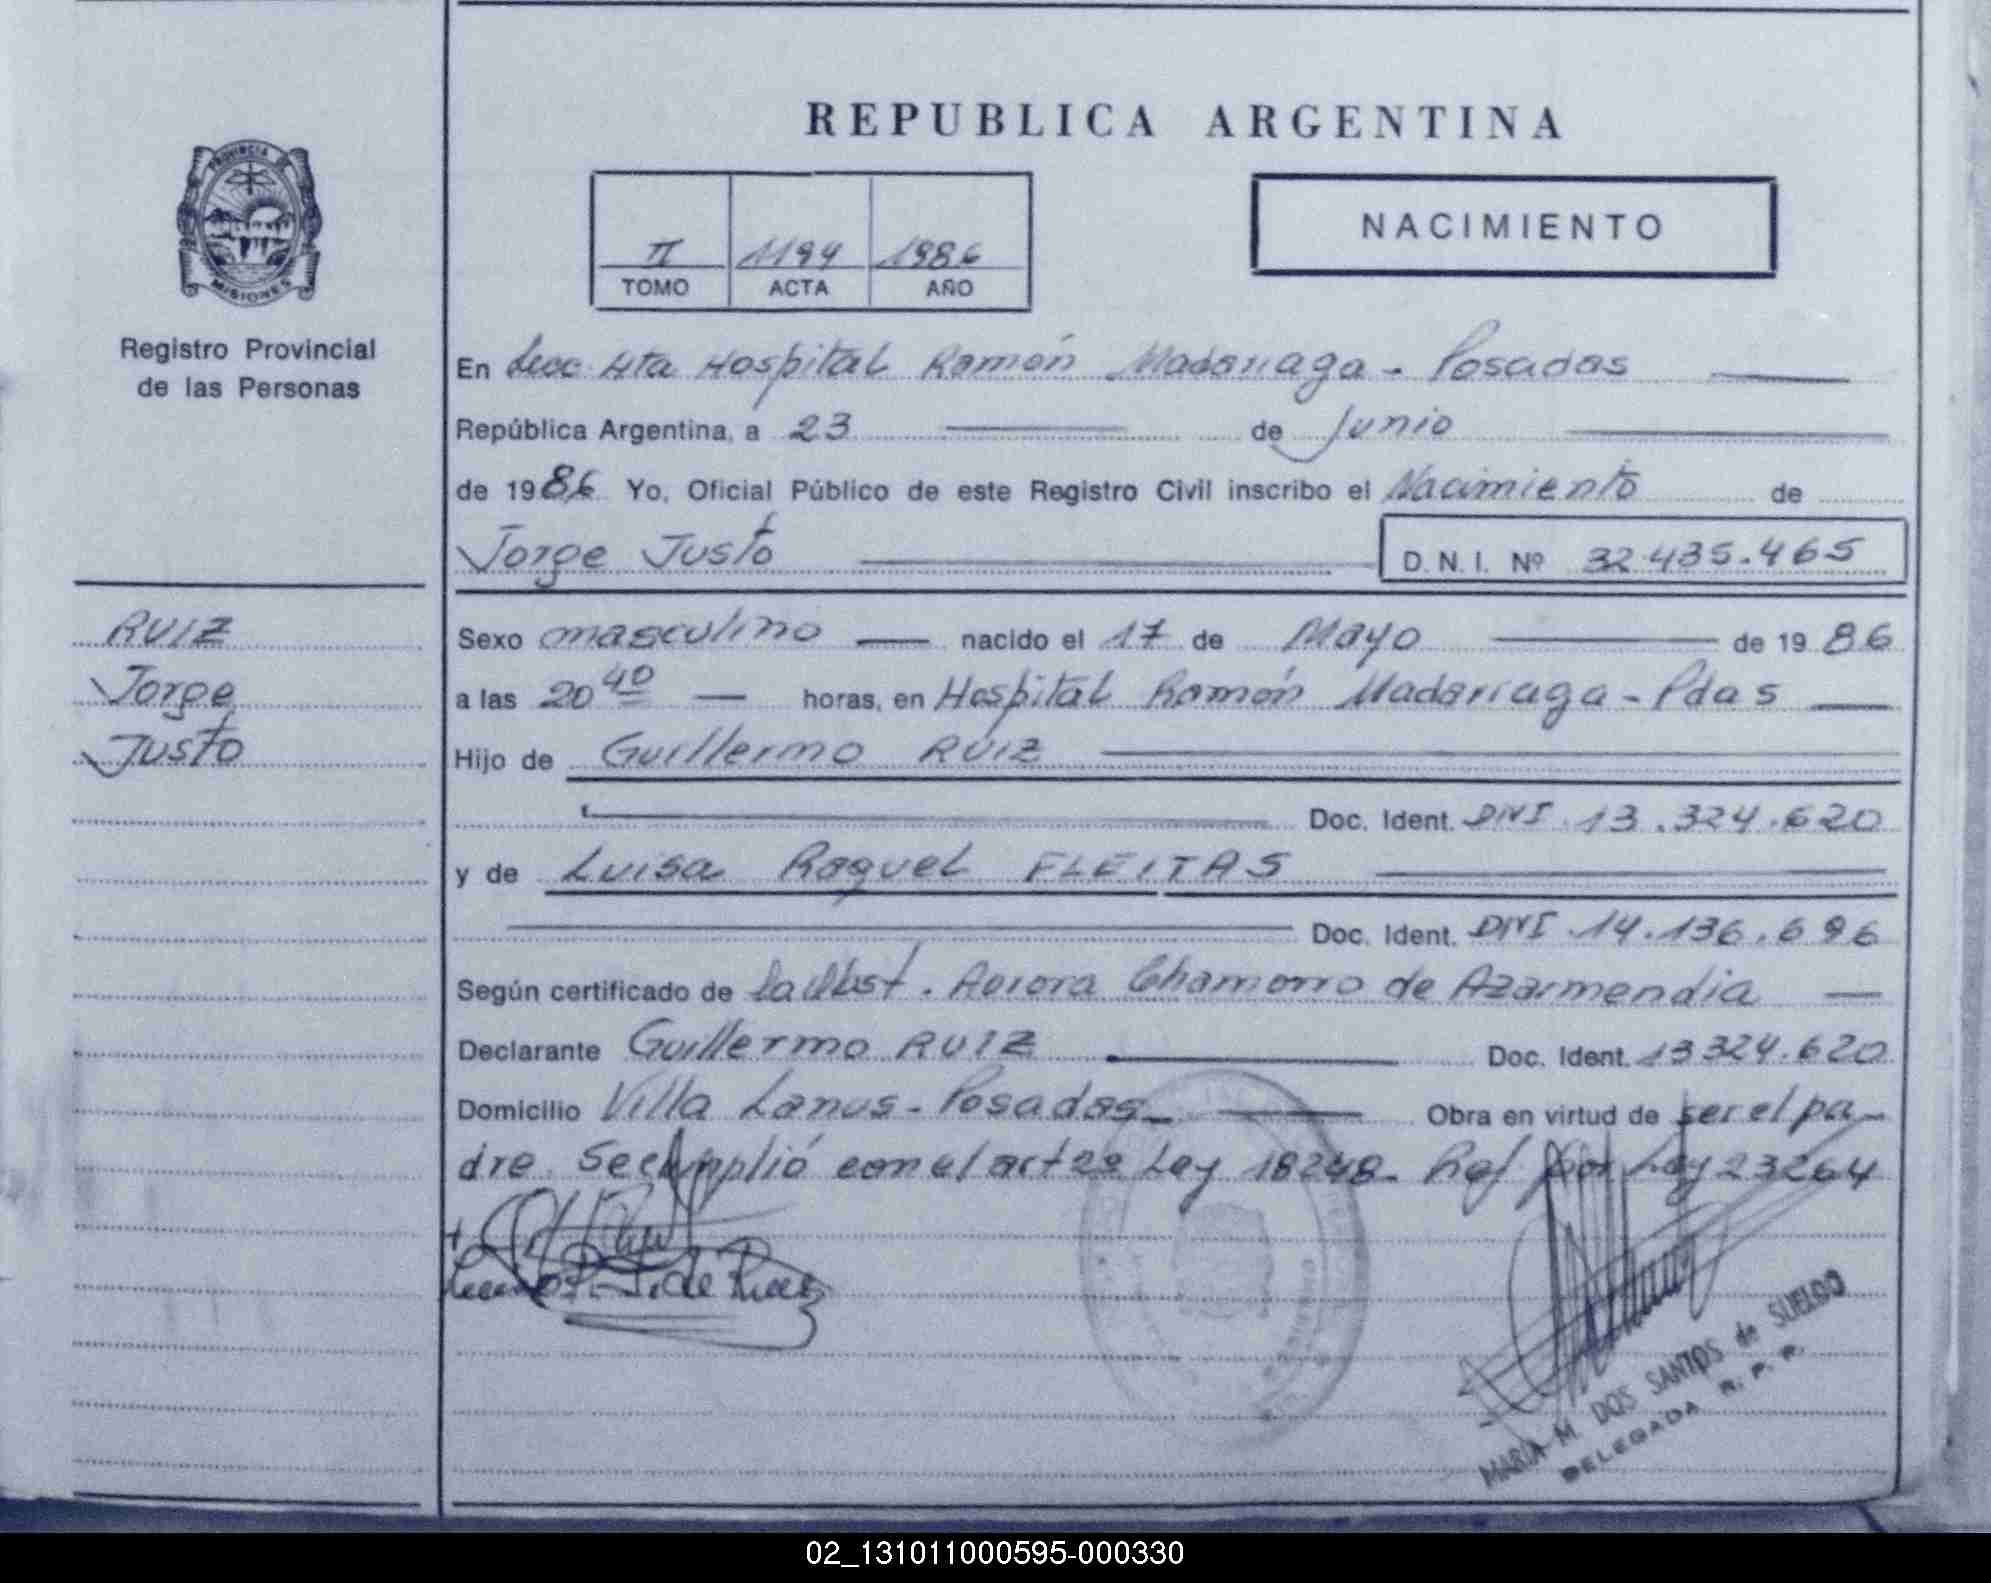 REPUBLICA ARGENTINA
PROVINCIA DE
MISIONES
Registro Provincial
de las Personas
II 1194 1986
TOMO ACTA AÑO
NACIMIENTO
En Secc 4ta Hospital Ramón Madariaga - Posadas
República Argentina, a 23 de Junio
de 1986 Yo, Oficial Público de este Registro Civil inscribo el Nacimiento de
Jorge Justo D.N.I. Nº 32.435.465
RUIZ
Jorge
Justo
Sexo masculino nacido el 17 de Mayo de 1986
a las 20 40 horas, en Hospital Ramón Madariaga - Pdas
Hijo de Guillermo RUIZ
Doc. Ident. DNI 13.324.620
y de Luisa Raquel FLEITAS
Doc. Ident. DNI 14.136.696
Según certificado de la Obst. Aurora Chamorro de Azarmendia
Declarante Guillermo RUIZ Doc. Ident. 13324.620
Domicilio Villa Lanus - Posadas Obra en virtud de ser el pa-
dre. Se cumplió con el art 2º Ley 18248 - Ref por Ley 23264
MARIA M. DOS SANTOS de SUELDO
DELEGADA R. P. P.
02_131011000595-000330